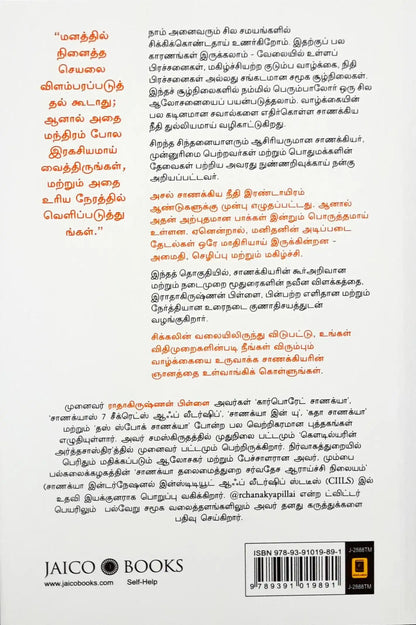 “மனத்தில்
நினைத்த
செயலை
விளம்பரப்படுத்
தல் கூடாது;
ஆனால் அதை
மந்திரம் போல
இரகசியமாய்
வைத்திருங்கள்,
மற்றும் அதை
உரிய நேரத்தில்
வெளிப்படுத்து
ங்கள்.”
நாம் அனைவரும் சில சமயங்களில்
சிக்கிக்கொண்டதாய் உணர்கிறோம். இதற்குப் பல
காரணங்கள் இருக்கலாம் - வேலையில் உள்ளப்
பிரச்சனைகள், மகிழ்ச்சியற்ற குடும்ப வாழ்க்கை, நிதி
பிரச்சனைகள் அல்லது சங்கடமான சமூக சூழ்நிலைகள்.
இந்தச் சூழ்நிலைகளில் நம்மில் பெரும்பாலோர் ஒரு சில
ஆலோசனையைப் பயன்படுத்தலாம். வாழ்க்கையின்
பல கடினமான சவால்களை எதிர்கொள்ள சாணக்கிய
நீதி துல்லியமாய் வழிகாட்டுகிறது.
சிறந்த சிந்தனையாளரும் ஆசிரியருமான சாணக்கியர்,
முன்னுரிமை பெற்றவர்கள் மற்றும் பொதுமக்களின்
தேவைகள் பற்றிய அவரது நுண்ணறிவுக்காய் நன்கு
அறியப்பட்டவர்.
அசல் சாணக்கிய நீதி இரண்டாயிரம்
ஆண்டுகளுக்கு முன்பு எழுதப்பட்டது. ஆனால்
அதன் அற்புதமான பாக்கள் இன்றும் பொருத்தமாய்
உள்ளன. ஏனென்றால், மனிதனின் அடிப்படை
தேடல்கள் ஒரே மாதிரியாய் இருக்கின்றன -
அமைதி, செழிப்பு மற்றும் மகிழ்ச்சி.
இந்தத் தொகுதியில், சாணக்கியரின் கூர்அறிவான
மற்றும் நடைமுறை மூதுரைகளின் நவீன விளக்கத்தை,
இராதாகிருஷ்ணன் பிள்ளை, பின்பற்ற எளிதான மற்றும்
நேர்த்தியான உரைநடை குணாதிசயத்துடன்
வழங்குகிறார்.
சிக்கலின் வலையிலிருந்து விடுபட்டு, உங்கள்
விதிமுறைகளின்படி நீங்கள் விரும்பும்
வாழ்க்கையை உருவாக்க சாணக்கியரின்
ஞானத்தை உள்வாங்கிக் கொள்ளுங்கள்.
முனைவர் ராதாகிருஷ்ணன் பிள்ளை அவர்கள் 'கார்பொரேட் சாணக்யா'.
'சாணக்யாஸ் 7 சீக்ரெட்ஸ் ஆஃப் லீடர்ஷிப்', 'சாணக்யா இன் யு'. 'கதா சாணக்யா'
மற்றும் 'தஸ் ஸ்போக் சாணக்யா' போன்ற பல வெற்றிகரமான புத்தகங்கள்
எழுதியுள்ளார். அவர் சமஸ்கிருதத்தில் முதுநிலை பட்டமும் 'கௌடில்யரின்
அர்த்தசாஸ்திர'த்தில் முனைவர் பட்டமும் பெற்றிருக்கிறார். நிர்வாகத்துறையில்
பெரிதும் மதிக்கப்படும் ஆலோசகர் மற்றும் பேச்சாளரான அவர், மும்பை
பல்கலைக்கழகத்தின் 'சாணக்யா தலைமைத்துறை சர்வதேச ஆராய்ச்சி நிலையம்'
(சாணக்யா இன்டர்நேஷனல் இன்ஸ்டிடியூட் ஆஃப் லீடர்ஷிப் ஸ்டடிஸ் (CIILS) இல்
உதவி இயக்குனராக பொறுப்பு வகிக்கிறார். @rchanakyapillai என்ற ட்விட்டர்
பெயரிலும் பல்வேறு சமூக வலைத்தளங்களிலும் அவர் தனது கருத்துக்களை
பதிவு செய்கிறார்.
JAICO BOOKS
www.jaicobooks.com Self-Help
ISBN 978-93-91019-89-1
9 789391 019891
J-2888TM
J-2888TM